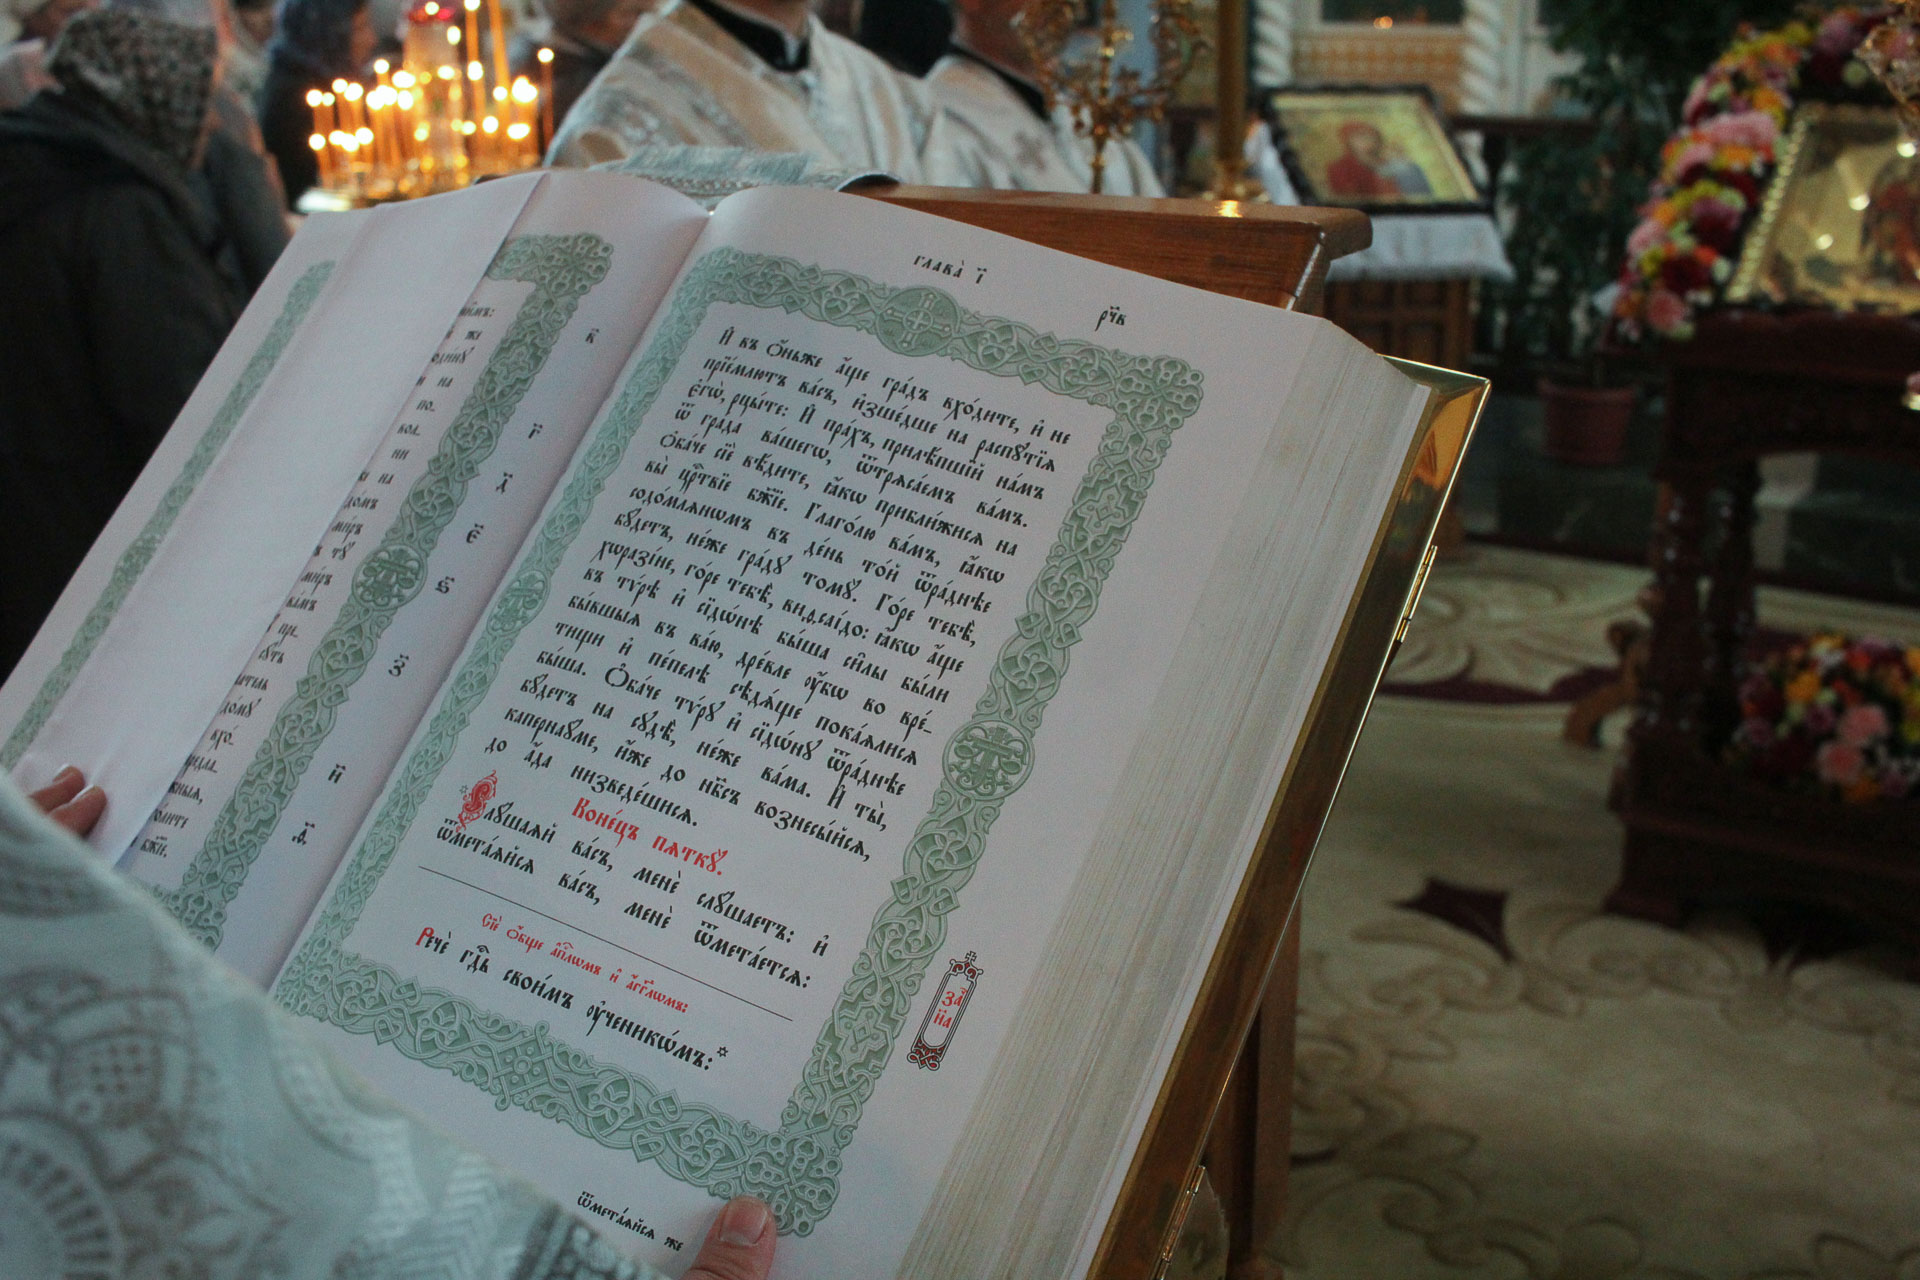 глава̀ і҃
рч҃в
И҆ въ ѻ҆́ньже а҆́ще гра́дъ вхо́дите, и҆ не
прїе́млютъ ва́съ, и҆зше́дше на распꙋ̑тїѧ
є҆гѡ̀, рцы́те: И҆ пра́хъ, прилѣ́пшїй на́мъ
ѿ гра́да ва́шегѡ, ѿтрѧса́емъ ва́мъ.
Ѻ҆ба́че сїѐ вѣ́дите, ꙗ҆́кѡ прибли́жисѧ на
вы̀ црⷭ҇твїе бж҃їе. Глаго́лю ва́мъ, ꙗ҆́кѡ
содо́млѧнѡмъ въ де́нь то́й ѿра́днѣе
бꙋ́детъ, не́же гра́дꙋ томꙋ̀. Го́ре тебѣ̀,
хѡразі́не, го́ре тебѣ̀, виѳсаі́до: ꙗ҆́кѡ а҆́ще
въ тѵ́рѣ и҆ сїдѡ́нѣ бы́ша си̑лы бы́ли
бы́вшыѧ въ ва́ю, дре́вле ᲂу҆́бѡ во вре́-
тищи и҆ пе́пелѣ сѣдѧ́ще пока́ѧлисѧ
бы́ша. Ѻ҆ба́че тѵ́рꙋ и҆ сїдѡ́нꙋ ѿра́днѣе
бꙋ́детъ на сꙋдѣ̀, не́же ва́ма. И҆ ты̀,
капернаꙋ́ме, и҆́же до нб҃съ вознесы́йсѧ,
до а҆́да низведе́шисѧ.
Коне́цъ пѧткꙋ̀.
Слꙋ́шаѧй ва́съ, менѐ слꙋ́шаетъ: и҆
ѿмета́ѧйсѧ ва́съ, менѐ ѿмета́етсѧ:
Сїѐ ѻ҆́бще а҆пⷭ҇лѡмъ и҆ а҆́гг҃лѡмъ:
Речѐ гдⷭ҇ь свои̑мъ ᲂу҆ченикѡ́мъ:*
за҃
н҃а
ѿмета́ѧйсѧ же
в҃
г҃
д҃
є҃
ѕ҃
з҃
и҃
ѳ҃
же
и на
по-
вол-
ни
на
прe-
домꙋ
вхо́-
бж҃їе.